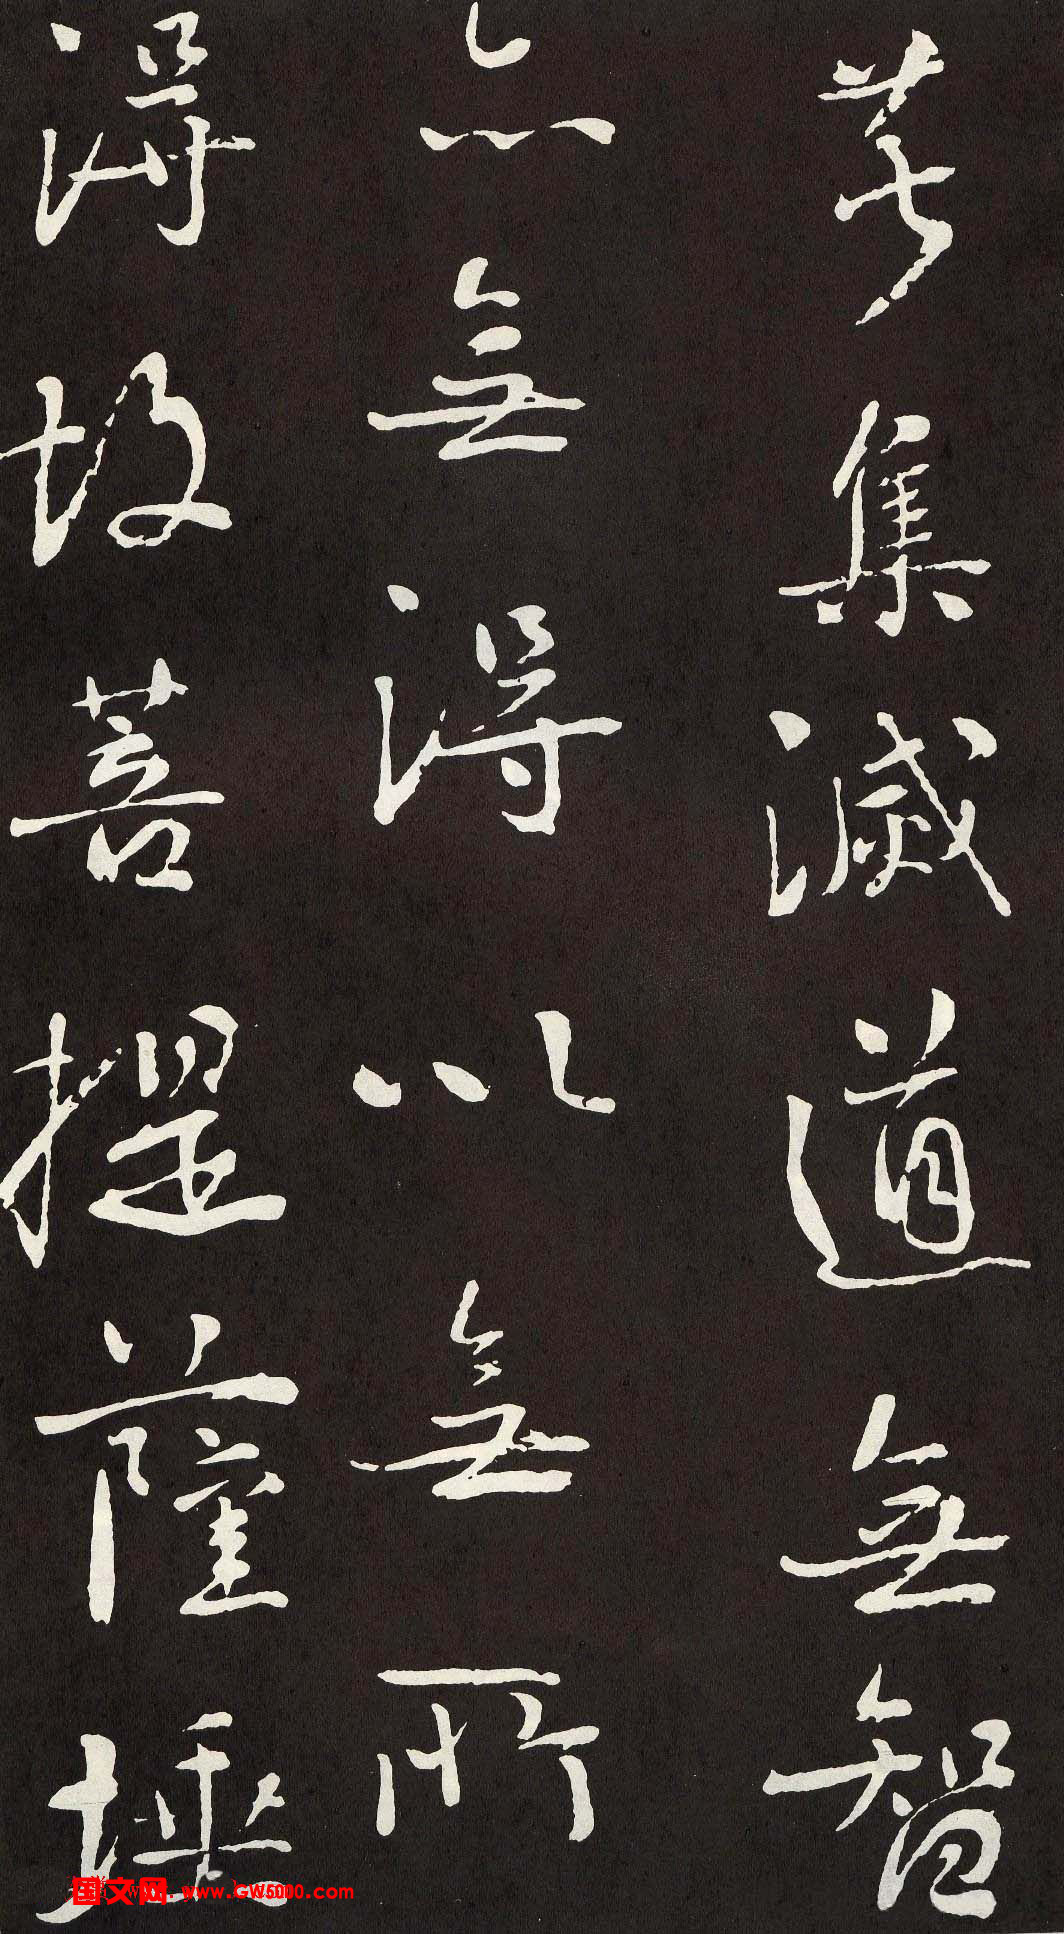 苦集滅道無智
亦無得以無所
得故菩提薩埵
国文网 www.GW5000.com